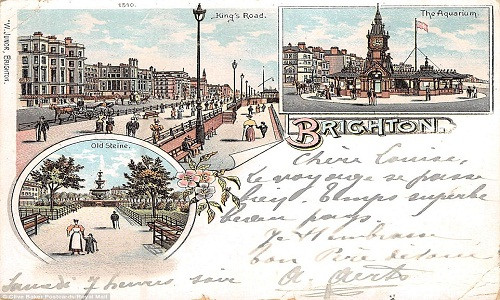 1390.
King's Road.
The Aquarium.
W. Junor, Brighton.
BRIGHTON
Old Steine.
Chère Louise,
le voyage se passe
bien. Temps superbe
beau pays.
Je
bon
Samedi 7 heures soir
© Clive Baker Postcards/Royal Mail